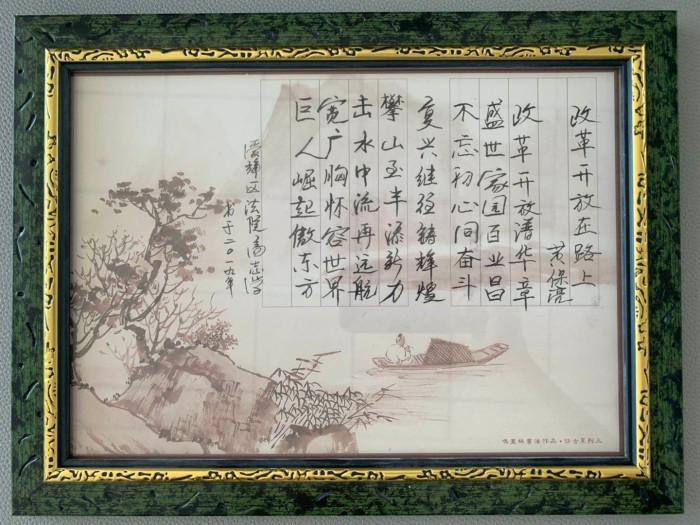 改革开放在路上
黄保亮
改革开放谱华章
盛世家国百业昌
不忘初心同奋斗
复兴继径铸辉煌
攀山至半添新力
击水中流再远航
宽广胸怀容世界
巨人崛起傲东方
区法院 高志学
书于二〇一九年
书法作品·仿古系列三